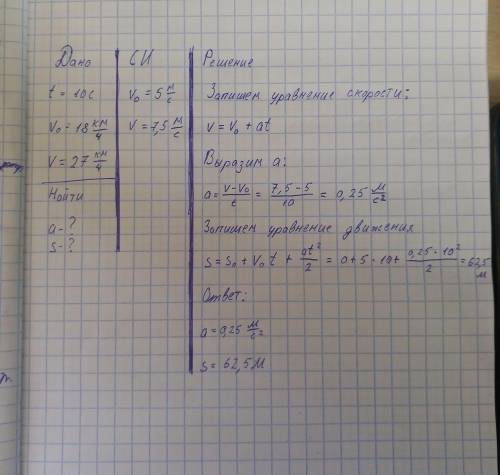 Дано
t = 10с
V₀ = 18 км/ч
V = 27 км/ч
Найти
a - ?
s - ?
СИ
V₀ = 5 м/с
V = 7,5 м/с
Решение
Запишем уравнение скорости:
V = V₀ + at
Выразим a:
a = (V-V₀)/t = (7,5-5)/10 = 0,25 м/с²
Запишем уравнение движения
S = S₀ + V₀t + at²/2 = 0 + 5 · 10 + (0,25 · 10²)/2 = 62,5 м
Ответ:
a = 0,25 м/с²
s = 62,5 м